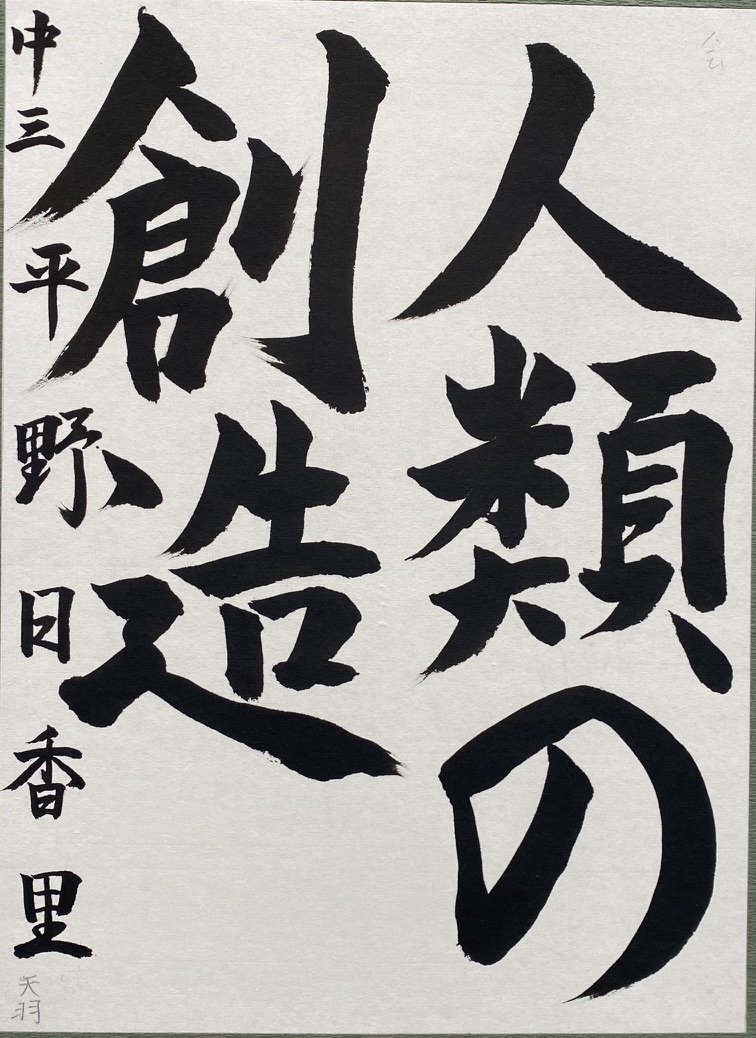 人類の
創造
中三 平野日香里
天羽